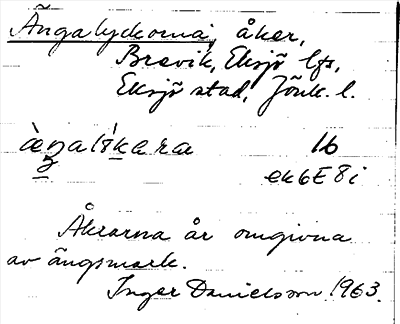 Ängalyckorna, åker,
Brevik, Eksjö lfs,
Eksjö stad, Jönk. l.
16
ek6E8i
Åkrarna är omgivna
av ängsmark.
Inger Danielsson 1963.